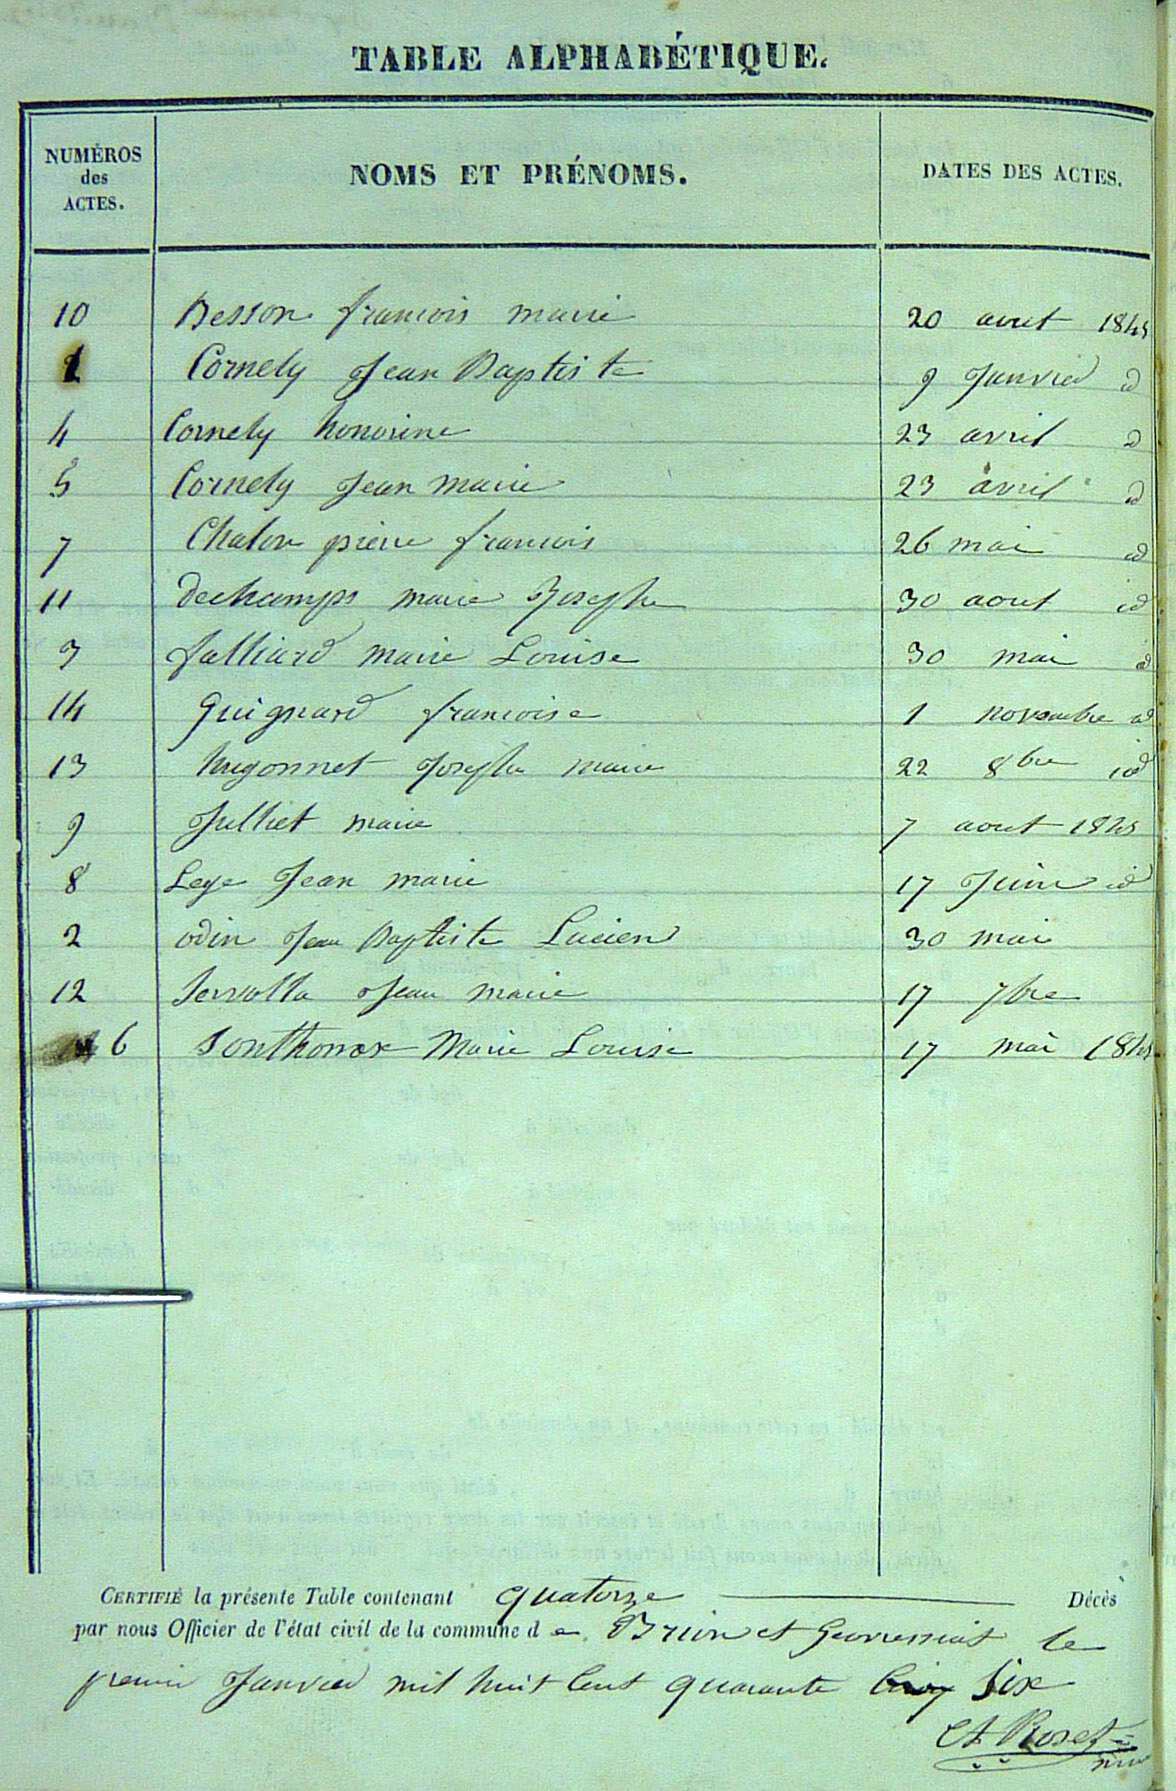 TABLE ALPHABÉTIQUE.
NUMÉROS des ACTES. NOMS ET PRÉNOMS. DATES DES ACTES.
10 Besson francois marie 20 aout 1845
1 Cornely Jean Baptiste 9 Janvier id
4 Cornely honorine 23 avril id
5 Cornely Jean marie 23 avril id
7 Chalon pierre francois 26 mai id
11 dechamps marie Josephe 30 aout id
3 falliard marie Louise 30 mai id
14 Guignard francoise 1 novembre id
13 hugonnet Josephe marie 22 8bre id
9 Julliet marie 7 aout 1845
8 Lege Jean marie 17 Juin id
2 odin Jean Baptiste Lucien 30 mai
12 Servolla Jean marie 17 7bre
6 Sonthonax Marie Louise 17 mai 1845
CERTIFIÉ la présente Table contenant quatorze Décès
par nous Officier de l'état civil de la commune d e Brion et Geovressiat le
premier Janvier mil huit Cent quarante Cinq Six